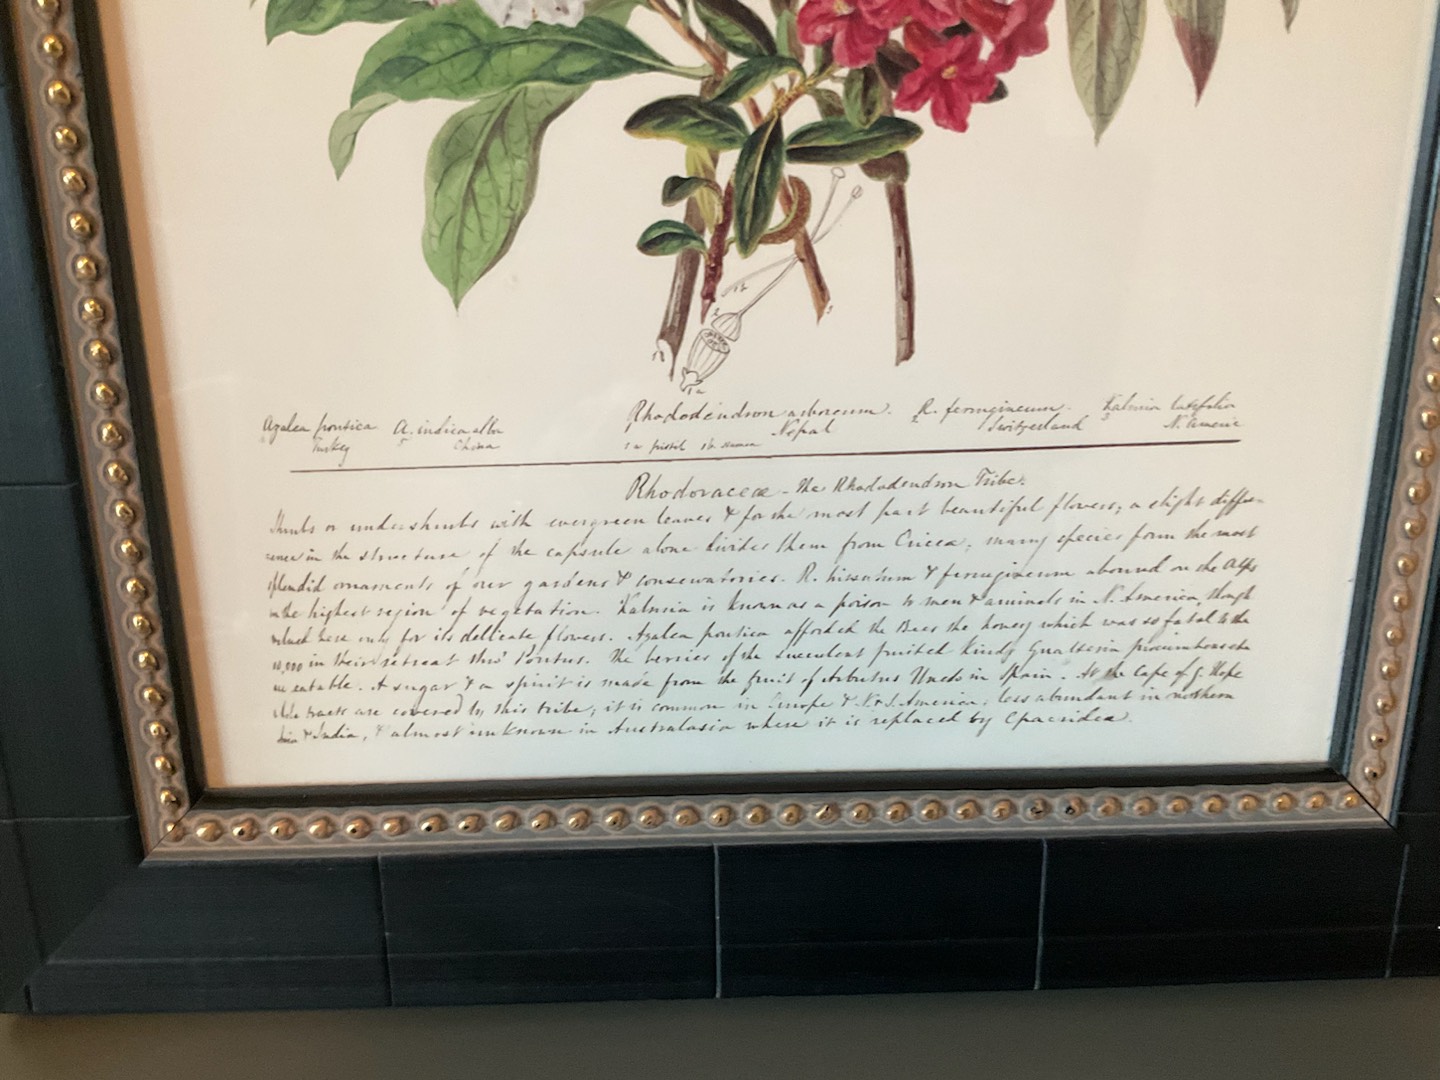 Azalea pontica A. indica alba Rhododendron arboreum. R. ferrugineum. Kalmia latifolia
Turkey China 1a pistil 1b stamen Nepal Switzerland N. America
Rhodoraceæ - the Rhododendron Tribe.
Shrubs or undershrubs with evergreen leaves & for the most part beautiful flowers; a slight differ-
ence in the structure of the capsule alone divides them from Ericeæ; many species form the most
splendid ornaments of our gardens & conservatories. R. hirsutum & ferrugineum abound on the Alps
in the highest region of vegetation. Kalmia is known as a poison to men & animals in N. America, though
valued here only for its delicate flowers. Azalea pontica afforded the Bees the honey which was so fatal to the
10,000 in their retreat thro' Pontus. The berries of the succulent fruited kinds Gualteria procumbens &c
are eatable. A sugar & a spirit is made from the fruit of Arbutus Unedo in Spain. At the Cape of G. Hope
whole tracts are covered by this tribe; it is common in Europe & N. & S. America; less abundant in northern
Asia & India, & almost unknown in Australasia where it is replaced by Epacrideæ.